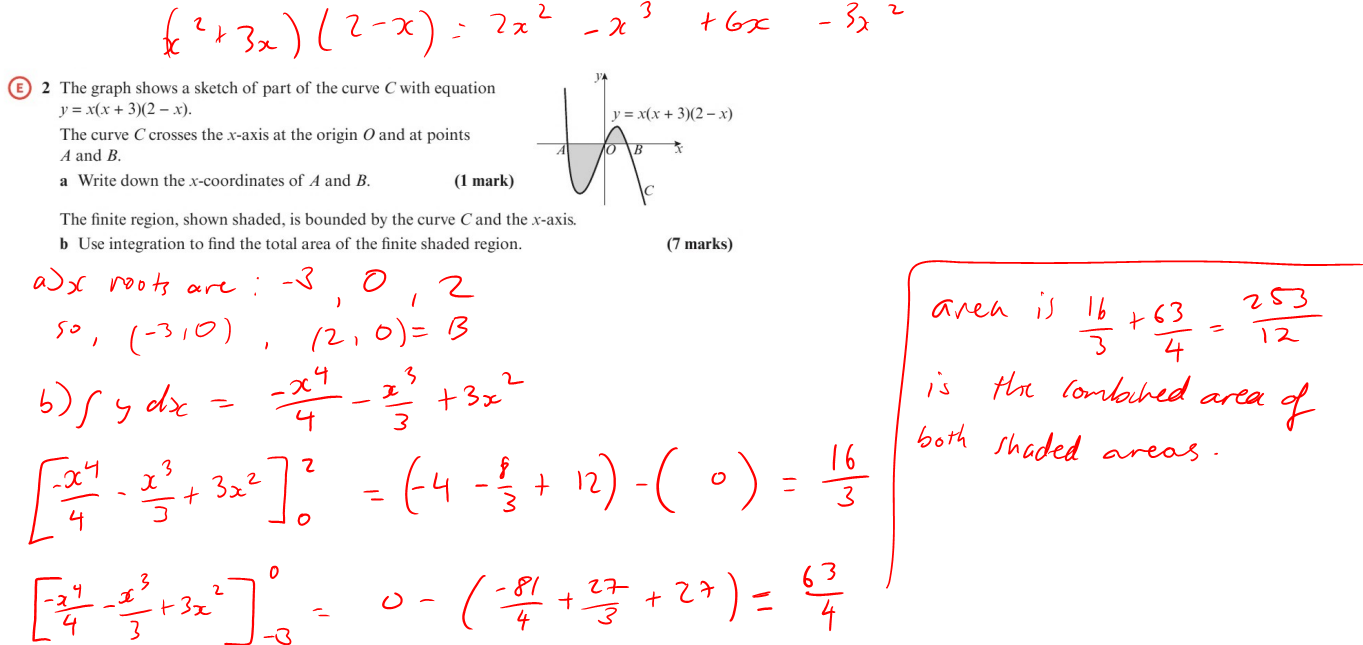 (x²+3x)(2-x) = 2x² - x³ + 6x - 3x²
E 2 The graph shows a sketch of part of the curve C with equation
y = x(x + 3)(2 – x).
The curve C crosses the x-axis at the origin O and at points
A and B.
a Write down the x-coordinates of A and B. (1 mark)
y
y = x(x + 3)(2 – x)
A O B x
C
The finite region, shown shaded, is bounded by the curve C and the x-axis.
b Use integration to find the total area of the finite shaded region. (7 marks)
a) x roots are : -3, 0, 2
so, (-3,0), (2,0) = B
b) ∫ y dx = -x⁴/4 - x³/3 + 3x²
[-x⁴/4 - x³/3 + 3x²]₀² = (-4 - 8/3 + 12) - (0) = 16/3
[-x⁴/4 - x³/3 + 3x²]₋₃⁰ = 0 - (-81/4 + 27/3 + 27) = 63/4
area is 16/3 + 63/4 = 253/12
is the combined area of
both shaded areas.